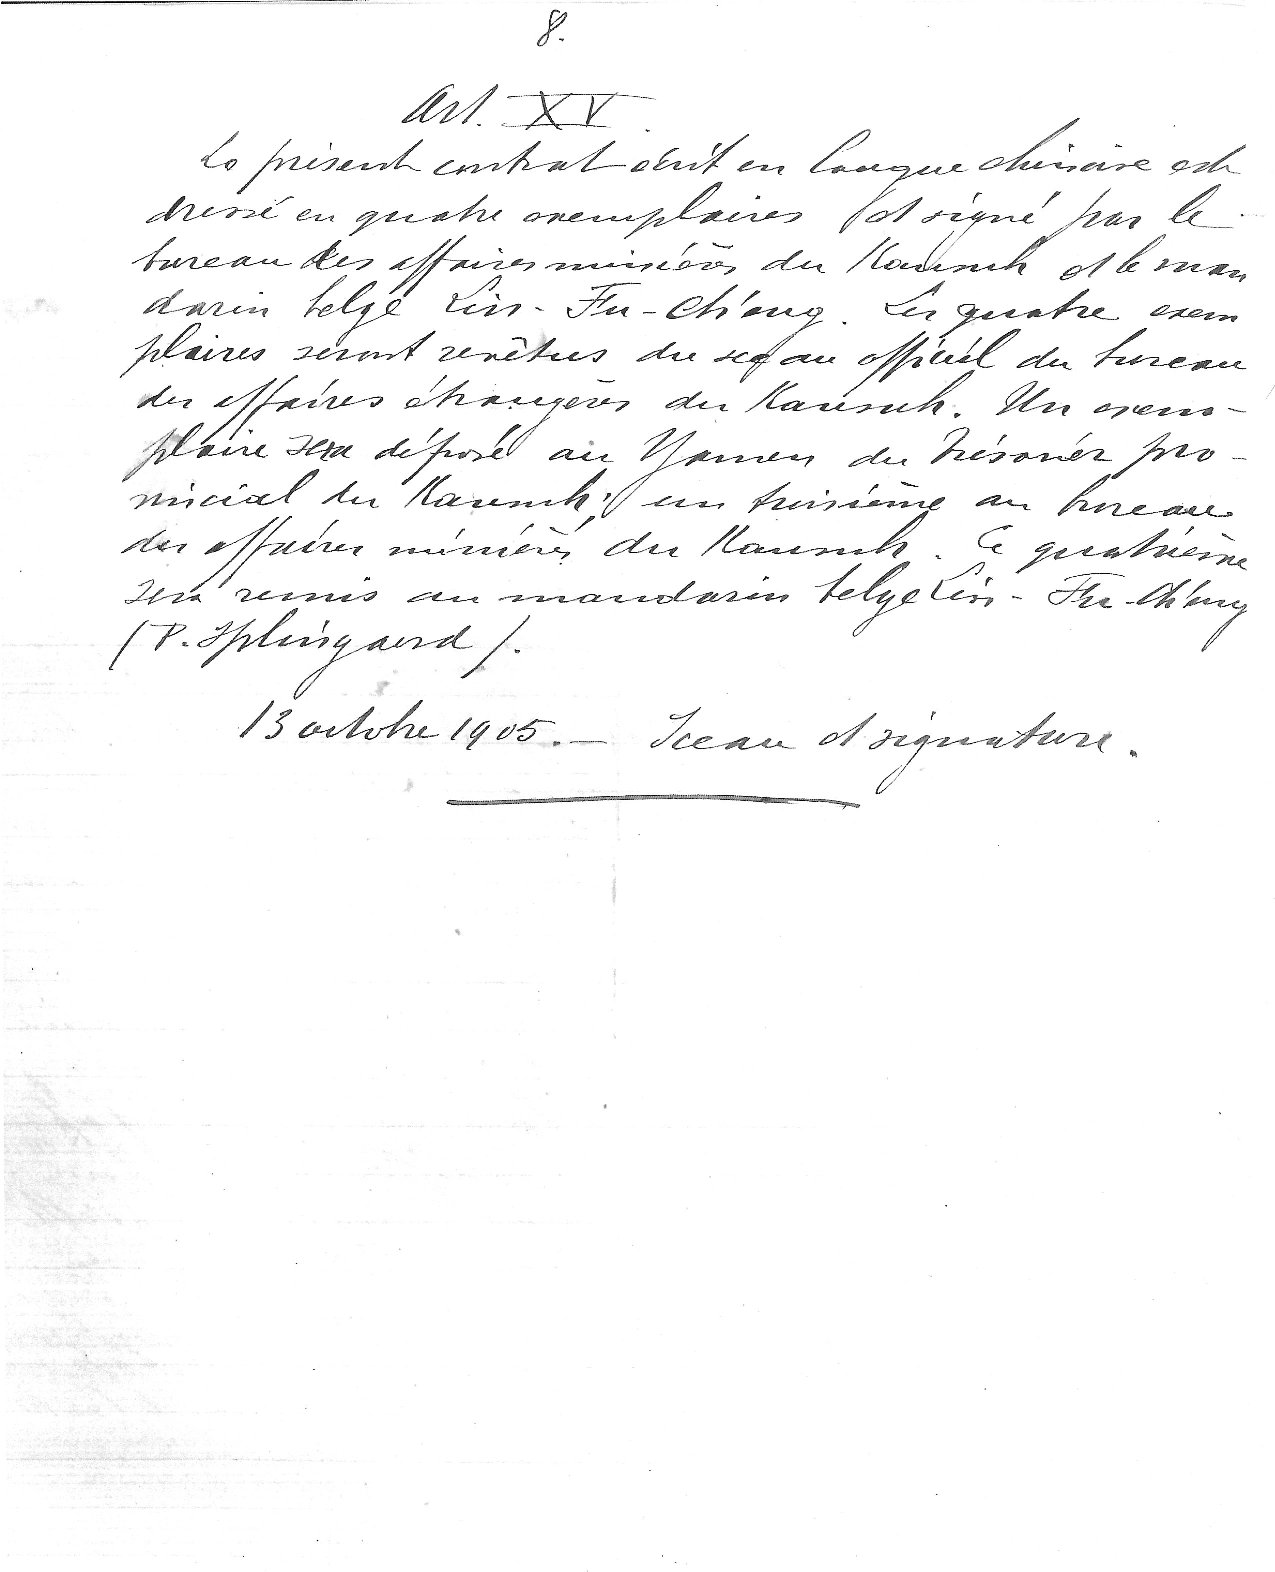 8.
Art. XV.
Le présent contrat écrit en langue chinoise est
dressé en quatre exemplaires et signé par le
bureau des affaires minières du Kansuh et le man
darin belge Lin-Fu-Ch'ang. Les quatre exem
plaires seront revêtus du sceau officiel du bureau
des affaires étrangères du Kansuh. Un exem-
plaire sera déposé au Yamen du trésorier pro-
vincial du Kansuh; un troisième au bureau
des affaires minières du Kansuh. Le quatrième
sera remis au mandarin belge Lin-Fu-Ch'ang
(P. Splingaerd).
13 octobre 1905. — Sceau et signature.